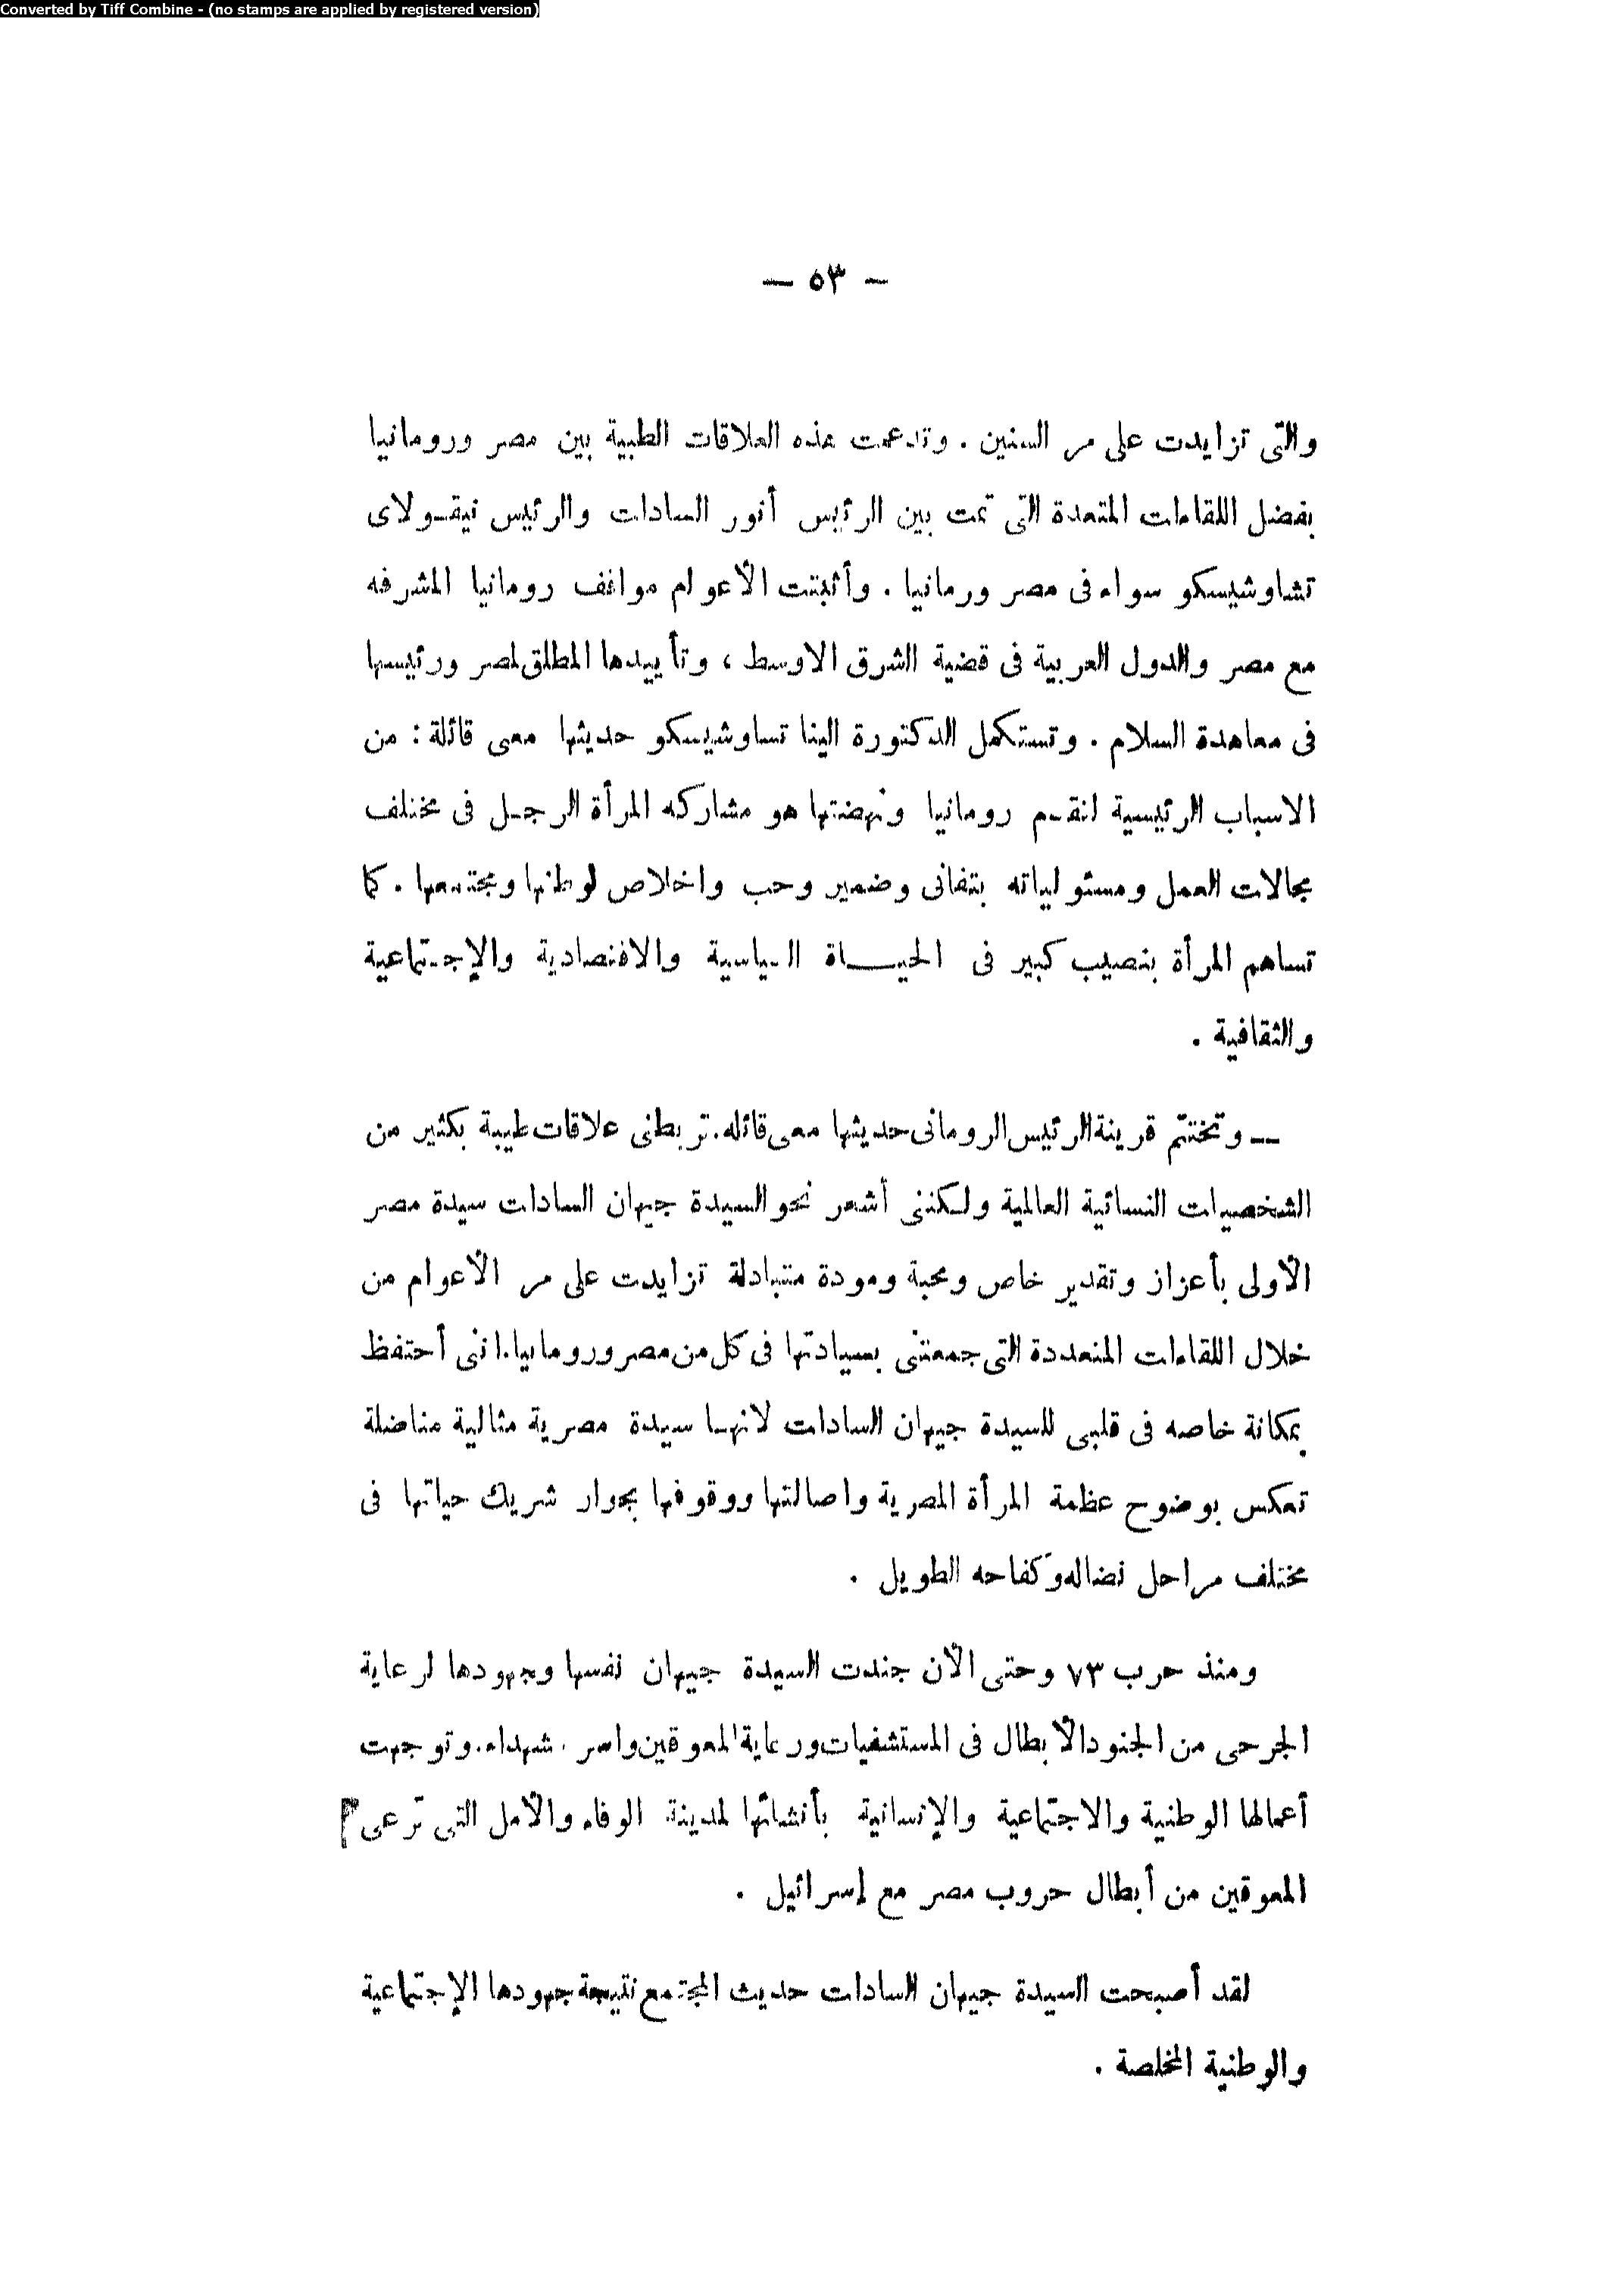 Converted by Tiff Combine - (no stamps are applied by registered version)
— ٥٣ —
والتى تزايدت على مر السنين . وتدعمت هذه العلاقات الطيبة بين مصر ورومانيا
بفضل اللقاءات المتعددة التى تمت بين الرئيس أنور السادات والرئيس نيقـولاى
تشاوشيسكو سواء فى مصر ورمانيا . وأثبتت الأعوام مواقف رومانيا المشرفه
مع مصر والدول العربية فى قضية الشرق الاوسط ، وتأييدها المطلق لمصر ورئيسها
فى معاهدة السلام . وتستكمل الدكتورة الينا تساوشيسكو حديثها معى قائلة : من
الاسباب الرئيسية لتقـدم رومانيا ونهضتها هو مشاركه المرأة الرجـل فى مختلف
مجالات العمل ومسئولياته بتفانى وضمير وحب واخلاص لوطنها ومجتمعها . كما
تساهم المرأة بنصيب كبير فى الحيـــاة السياسية والاقتصادية والإجتماعية
والثقافية .
— وتختتم قرينة الرئيس الرومانى حديثها معى قائله . تربطنى علاقات طيبة بكثير من
الشخصيات النسائية العالمية ولكننى أشعر نحو السيدة جيهان السادات سيدة مصر
الأولى بأعزاز وتقدير خاص ومحبة ومودة متبادلة تزايدت على مر الأعوام من
خلال اللقاءات المتعددة التى جمعتنى بسيادتها فى كل من مصر ورومانيا . اننى أحتفظ
بمكانة خاصه فى قلبى للسيدة جيهان السادات لانهـا سيدة مصرية مثالية مناضلة
تعكس بوضوح عظمة المرأة المصرية واصالتها ووقوفها بجوار شريك حياتها فى
مختلف مراحل نضاله وكفاحه الطويل .
ومنذ حرب ٧٣ وحتى الأن جندت السيدة جيهان نفسها وجهودها لرعاية
الجرحى من الجنود الأبطال فى المستشفيات ورعاية المعوقين واسر شهداء . وتوجهت
أعمالها الوطنية والاجتماعية والإنسانية بأنشائها لمدينة الوفاء والأمل التى ترعى
المعوقين من أبطال حروب مصر مع إسرائيل .
لقد أصبحت السيدة جيهان السادات حديث المجتمع نتيجة جهودها الإجتماعية
والوطنية المخلصة .